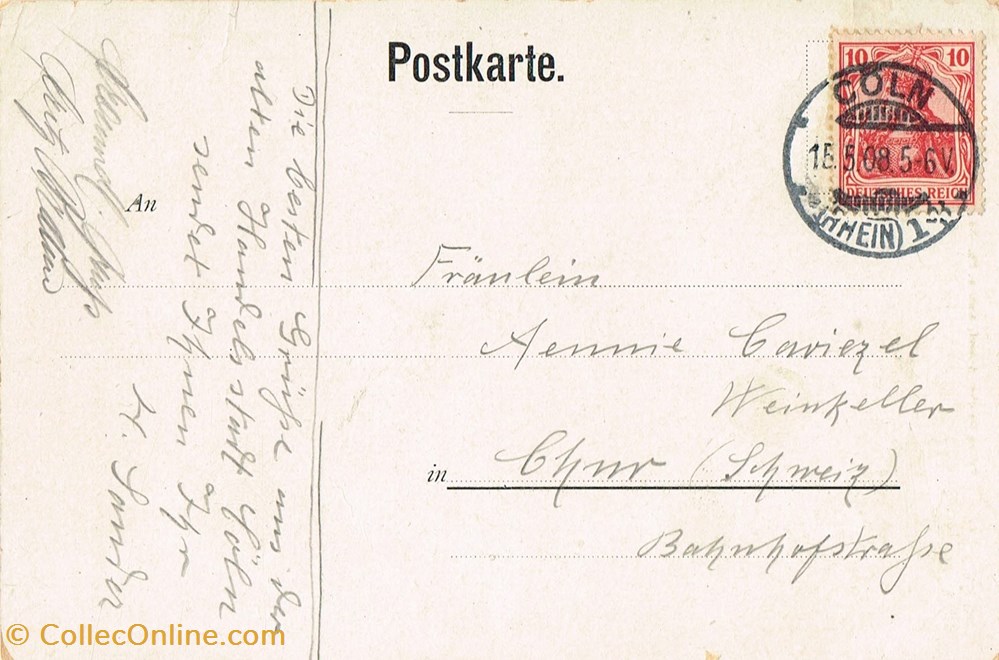 Postkarte.
10 10
DEUTSCHES REICH
CÖLN
15.5.08.5-6V
(RHEIN) 1
An
Fräulein
Aennie Caviezel
Weinkeller
in Chur (Schweiz)
Bahnhofstraße
Die besten Grüße aus der
alten Handelsstadt Cöln
sendet Ihnen Ihr
H. Sander
© CollecOnline.com